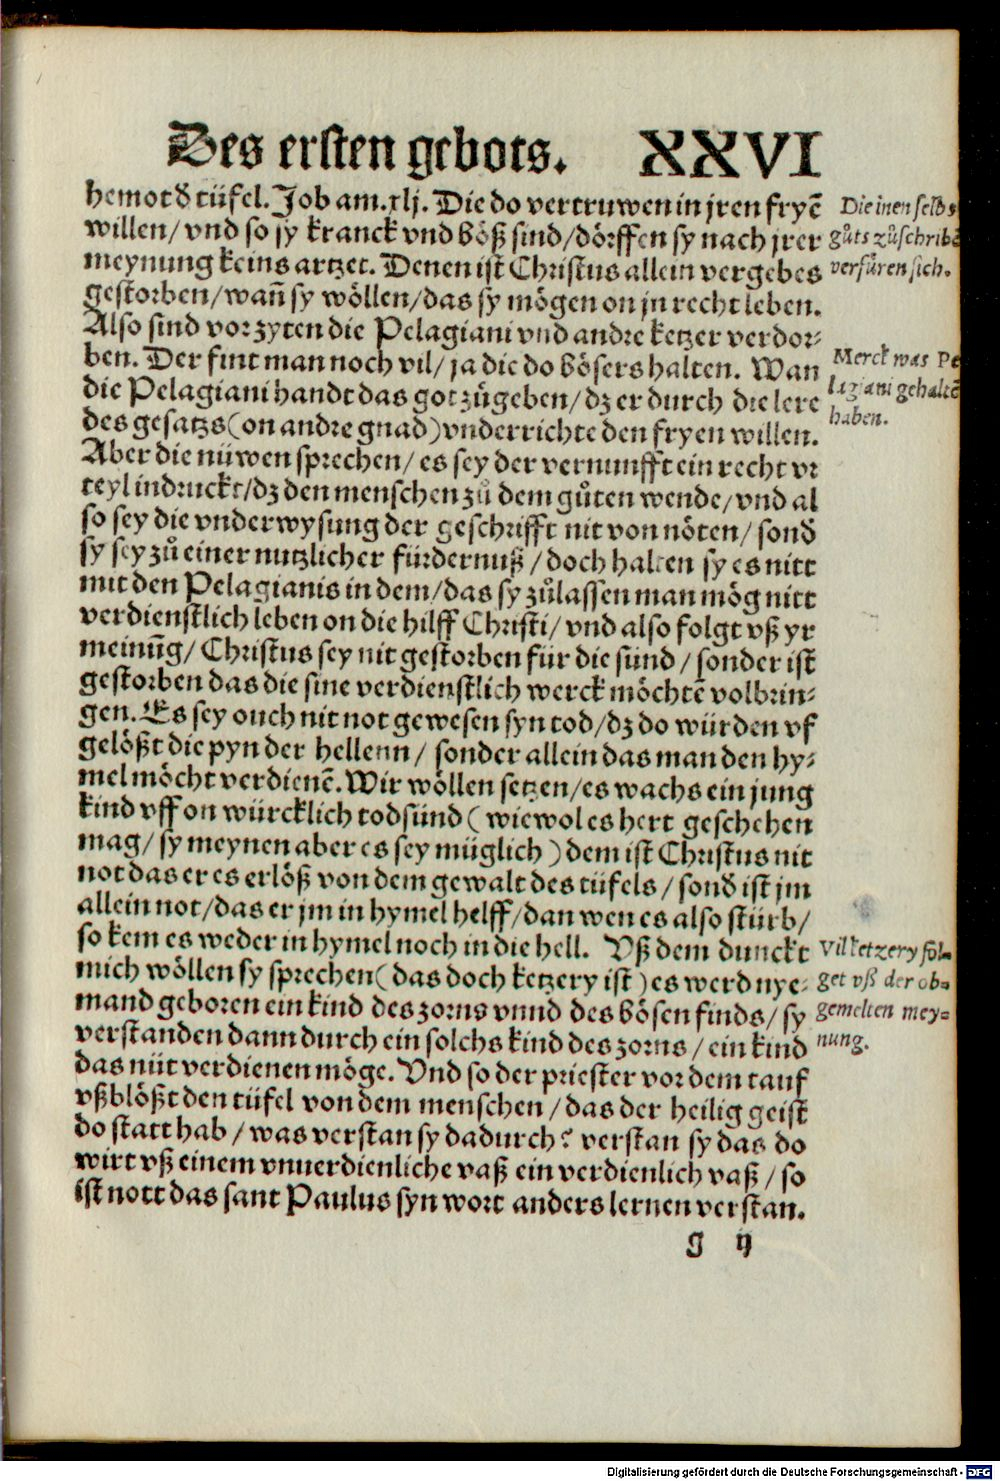 Des ersten gebots. XXVI
hemot d̕ tüfel. Job am. xlj. Die do vertruwen in jren fryē
willen / vnd so sy kranck vnd böß sind / dörffen sy nach jrer
meynung keins artzet. Denen ist Christus allein vergebēs
gestorben / wañ sy wöllen / das sy mögen on jn recht leben.
Also sind vor zyten die Pelagiani vnd andre ketzer verdor⸗
ben. Der fint man noch vil / ja die do bösers halten. Wan
die Pelagiani handt das got zůgeben / dz er durch die lere
des gesatzs (on andre gnad) vnderrichte den fryen willen.
Aber die nüwen sprechen / es sey der vernunfft ein recht vr
teyl indruckt / dz den menschen zů dem gůten wende / vnd al
so sey die vnderwysung der geschrifft nit von nöten / sond̕
sy sey zů einer nutzlicher fürdernuß / doch halten sy es nitt
mit den Pelagianis in dem / das sy zůlassen man mög nitt
verdienstlich leben on die hilff Christi / vnd also folgt vß yr
meinūg / Christus sey nit gestorben für die sünd / sonder ist
gestorben das die sine verdienstlich werck möchtē volbrin⸗
gen. Es sey ouch nit not gewesen syn tod / dz do würden vf
gelößt die pyn der hellenn / sonder allein das man den hy⸗
mel möcht verdienē. Wir wöllen setzen / es wachs ein jung
kind vff on würcklich todsünd (wiewol es hert geschehen
mag / sy meynen aber es sey müglich) dem ist Christus nit
not das er es erlöß von dem gewalt des tüfels / sond̕ ist jm
allein not / das er jm in hymel helff / dan wen es also stürb /
so kem es weder in hymel noch in die hell. Vß dem dunckt
mich wöllen sy sprechen (das doch ketzery ist) es werd nye⸗
mand geboren ein kind des zorns vnnd des bösen finds / sy
verstanden dann durch ein solchs kind des zorns / ein kind
das nüt verdienen möge. Vnd so der priester vor dem tauf
vßblößt den tüfel von dem menschen / das der heilig geist
do statt hab / was verstan sy dadurch? verstan sy das do
wirt vß einem vnuerdienliche vaß ein verdienlich vaß / so
ist nott das sant Paulus syn wort anders lernen verstan.
g ij
Die inen selbs
gůts zůschribē
verfüren sich.
Merck was Pe
lagiani gehaltē
haben.
Vil ketzery fol⸗
get vß der ob⸗
gemelten mey⸗
nung.
Digitalisierung gefördert durch die Deutsche Forschungsgemeinschaft - DFG